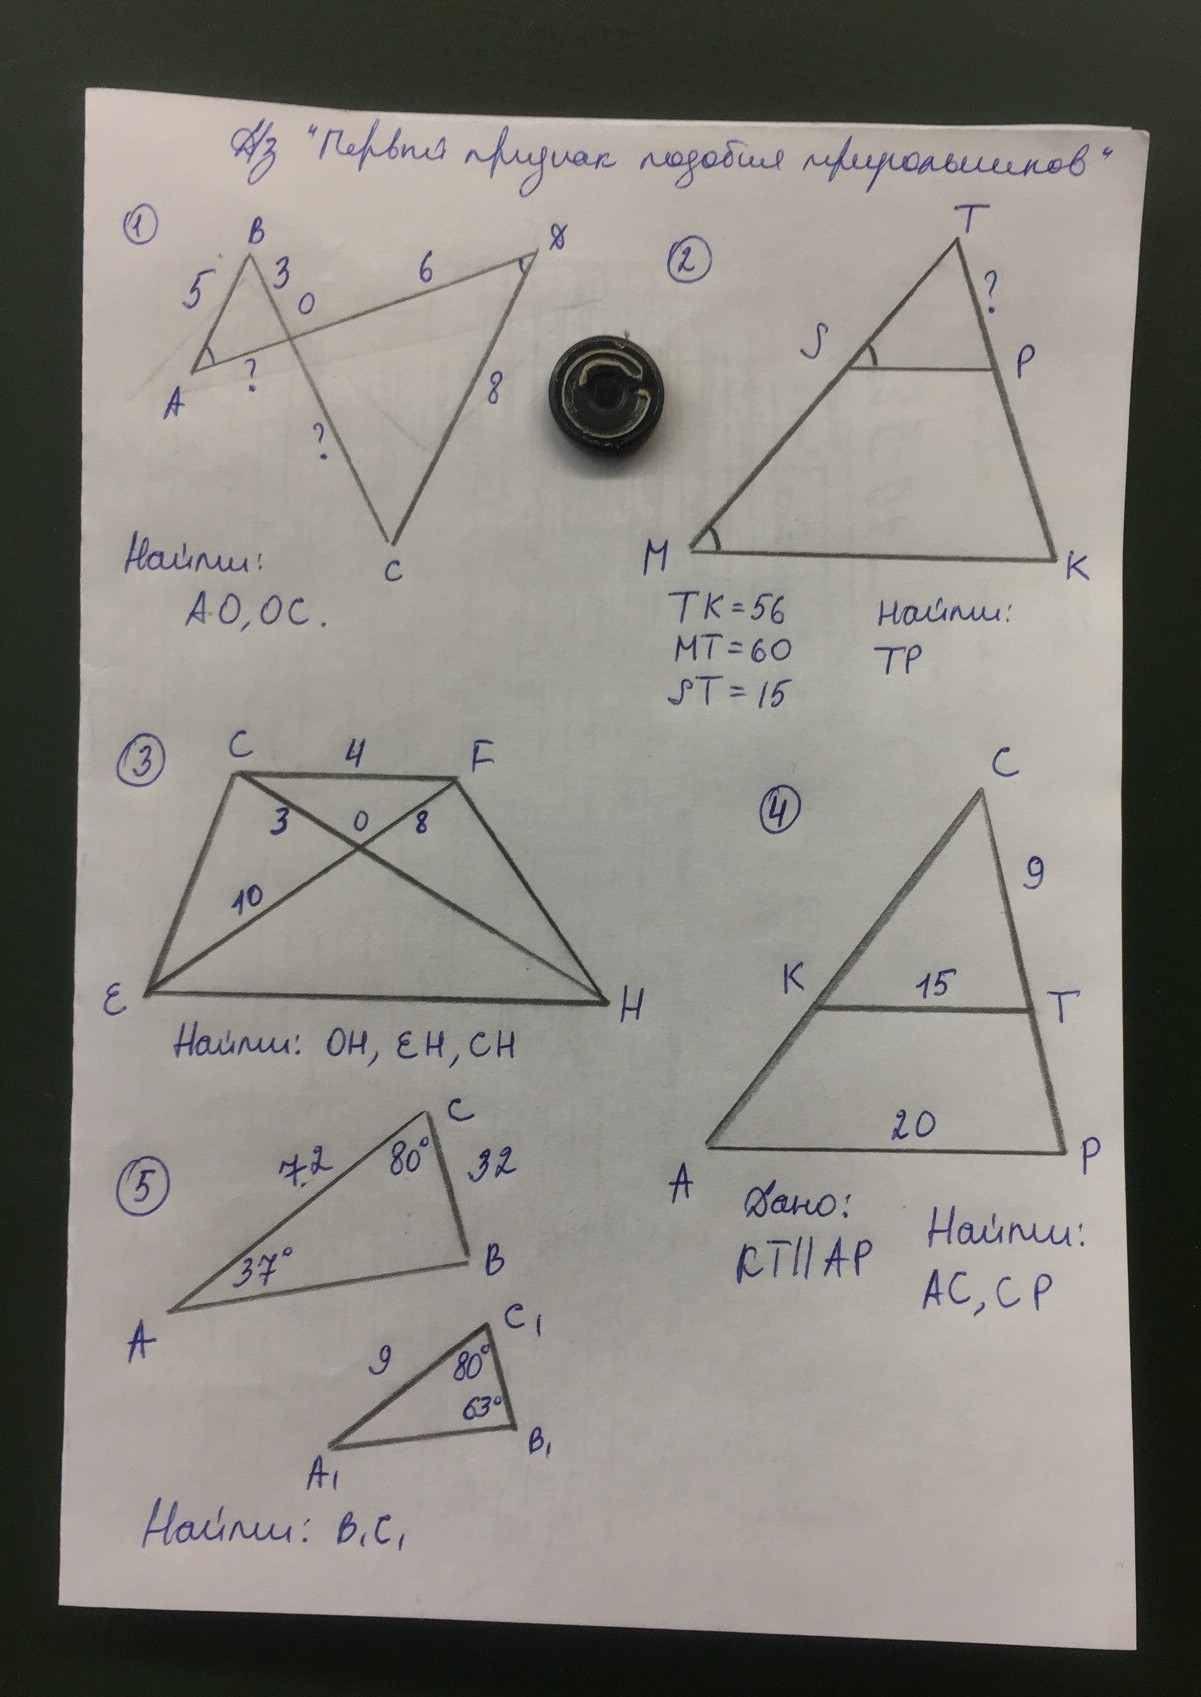 Д/з "Первый признак подобия треугольников"
1
B
5
3
O
6
Д
A
?
?
8
C
Найти:
AO, OC.
2
T
?
S
P
M
K
TK = 56
MT = 60
ST = 15
Найти:
TP
3
C
4
F
3
O
8
10
E
H
Найти: OH, EH, CH
4
C
9
K
15
T
20
A
P
Дано:
KT || AP
Найти:
AC, CP
5
C
72
80°
32
37°
B
A
C₁
9
80°
63°
B₁
A₁
Найти: B₁C₁